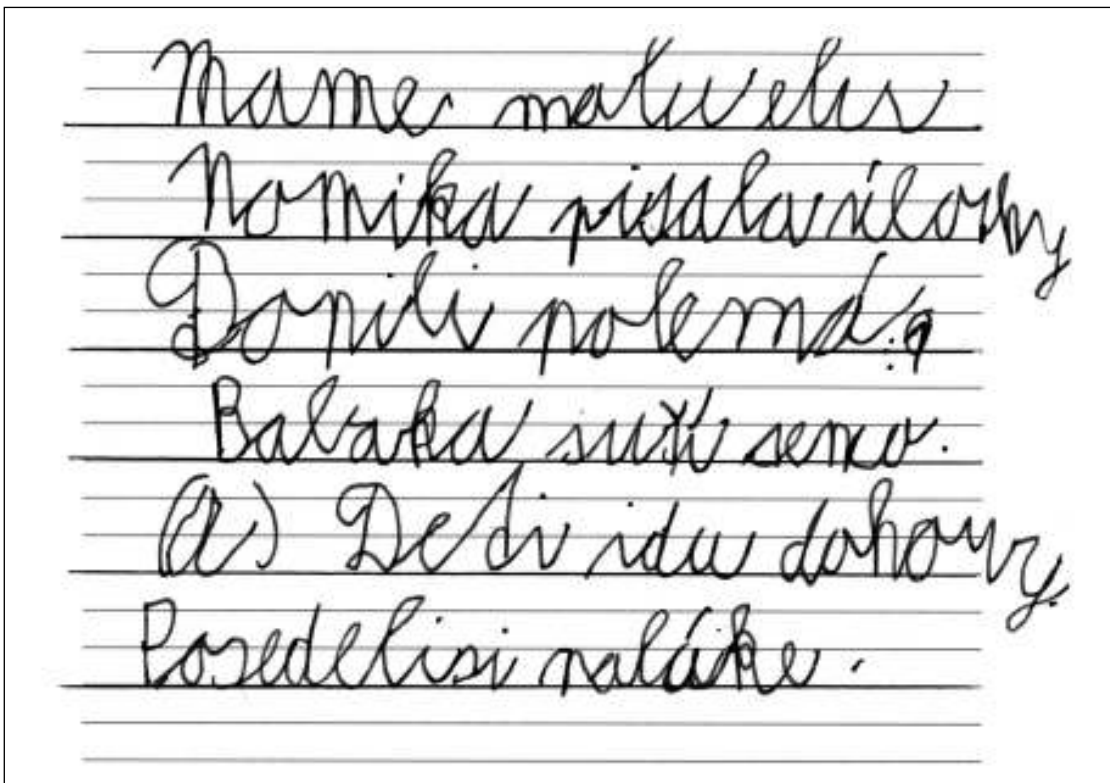 Mame malu elu
Nomika pisala úlohy
Dopili polema.
Babaka suši semo.
(A) Deti idu dohory.
Posedelisi naláke.